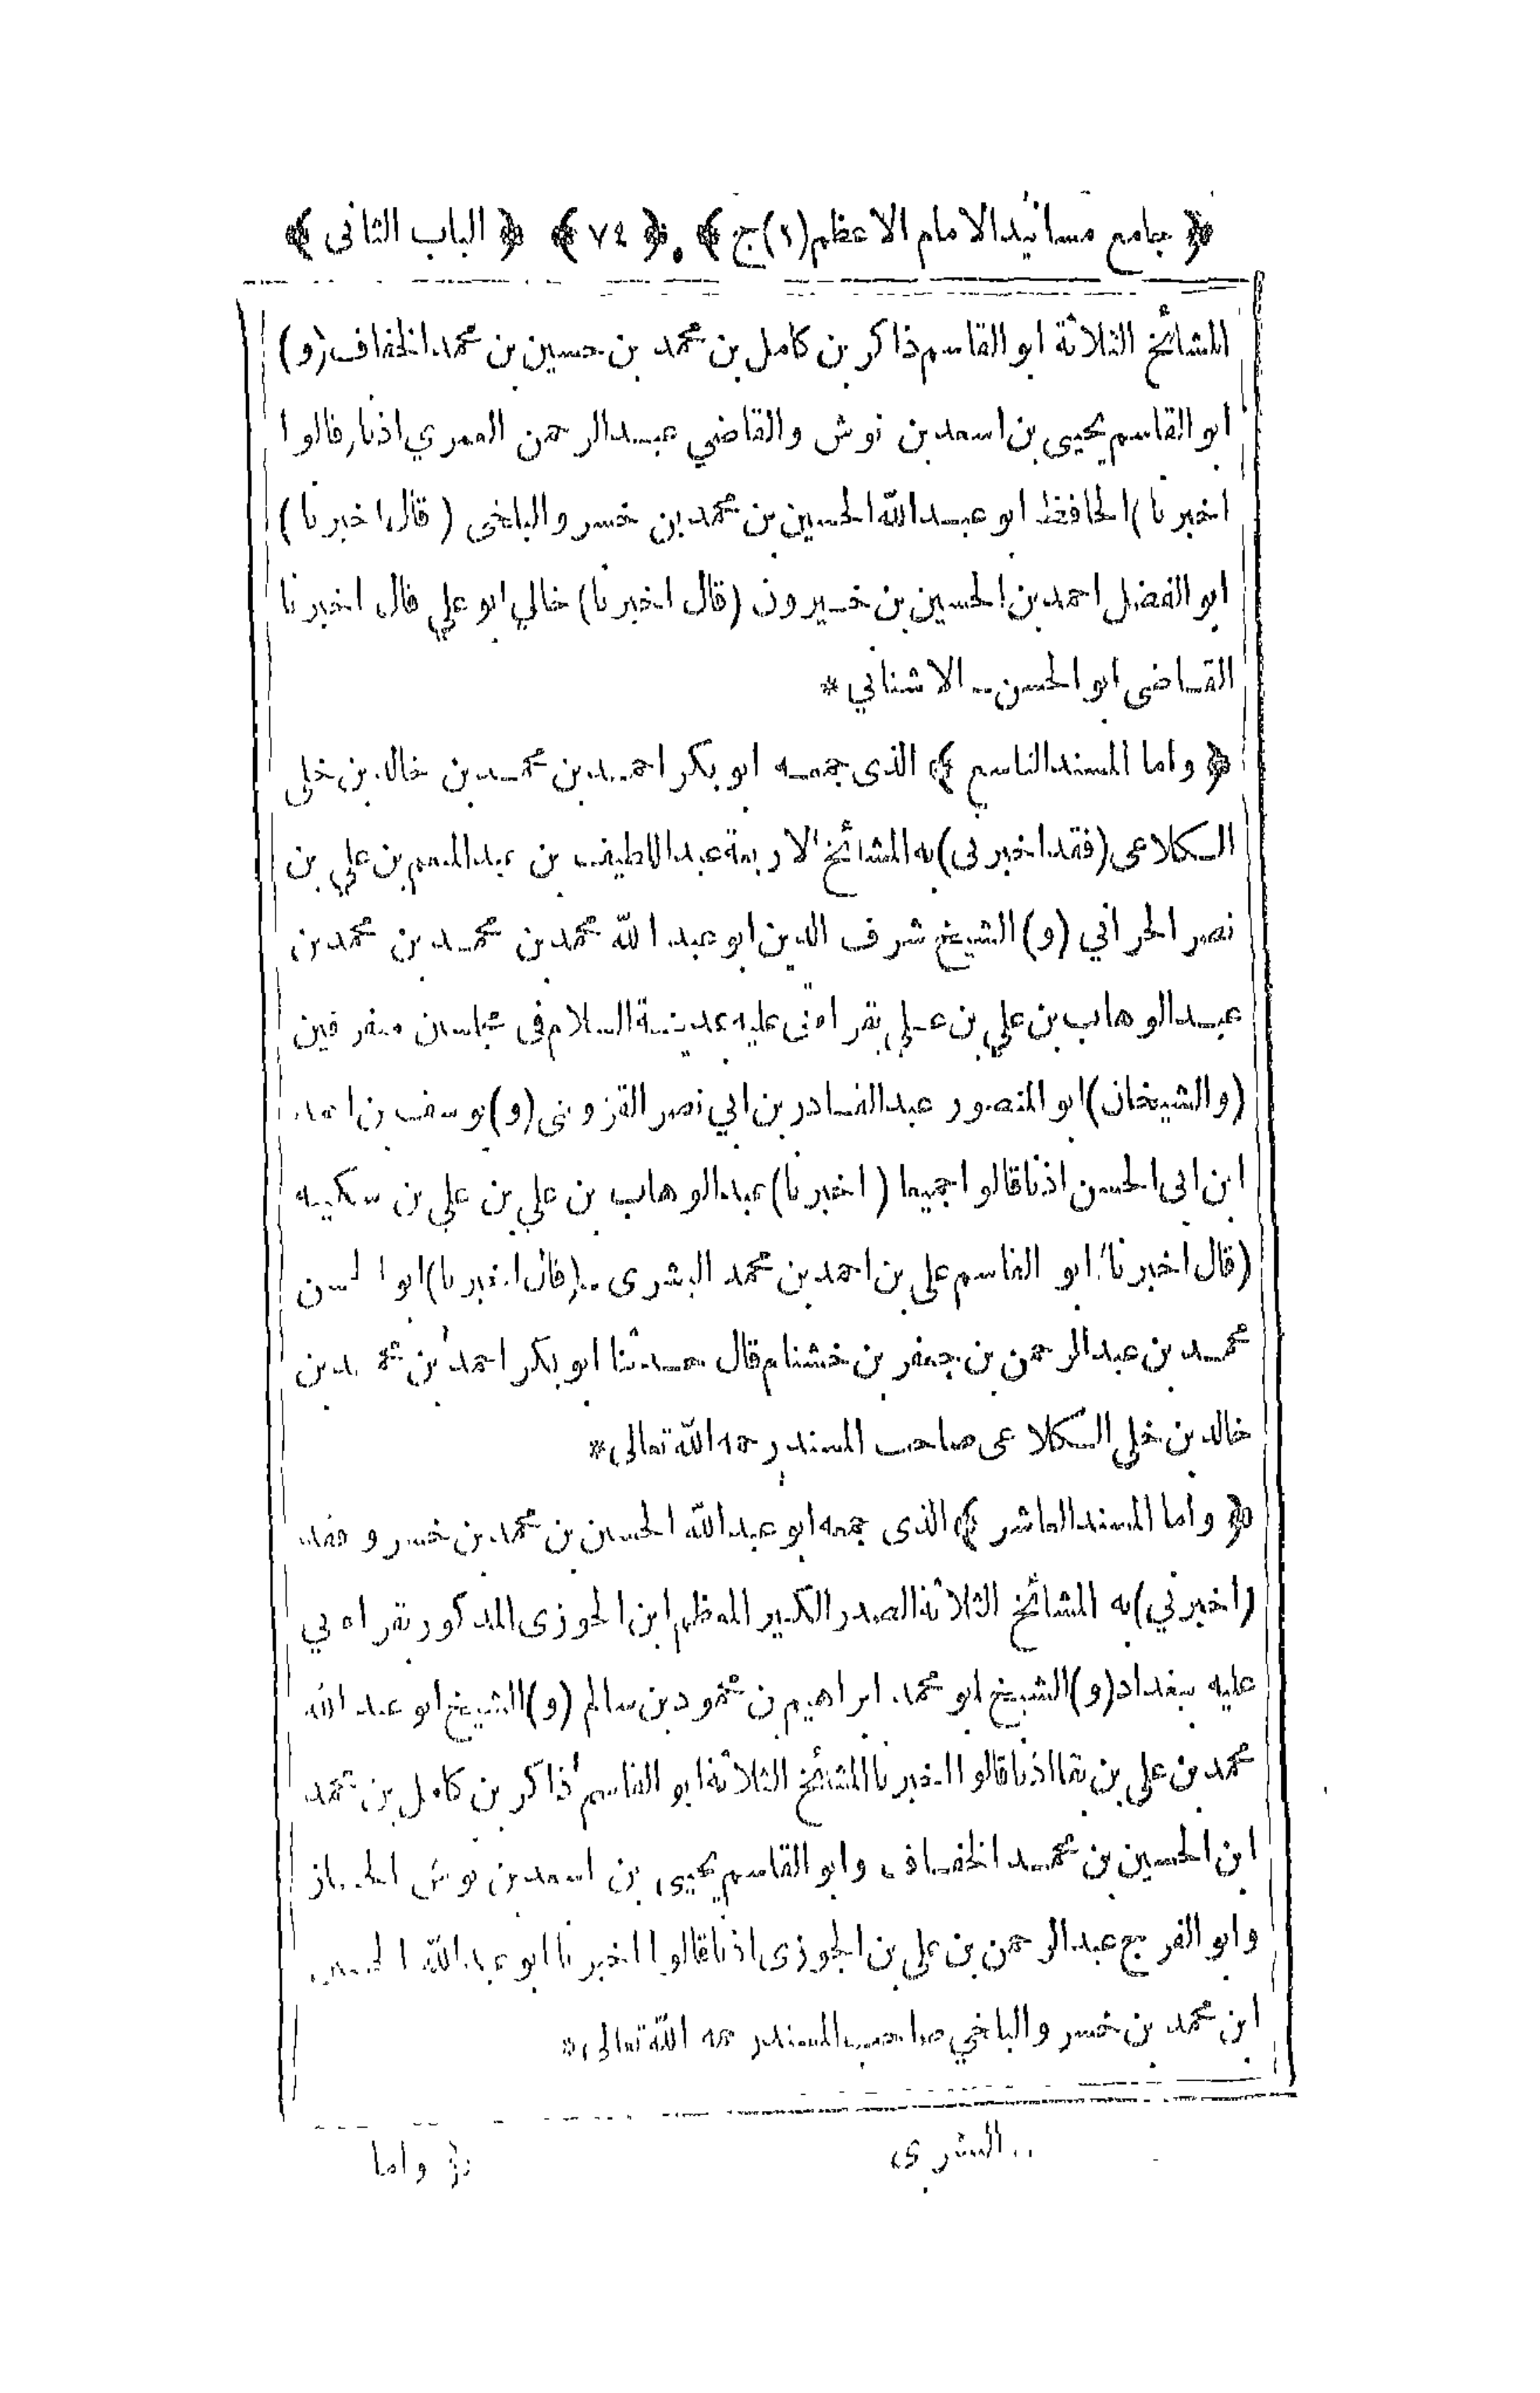 ﴿ جامع مسانيد الامام الاعظم (١) ج ﴾ ﴿ ٧٤ ﴾ ﴿ الباب الثانى ﴾
المشائخ الثلاثة ابو القاسم ذاكر بن كامل بن محمد بن حسين بن محمد الخفاف (و)
ابو القاسم يحيى بن اسعد بن نوش والقاضي عبد الرحمن العمري اذنا (قالوا
اخبرنا) الحافظ ابو عبد الله الحسين بن محمد بن خسرو البلخى (قال اخبرنا)
ابو الفضل احمد بن الحسين بن خيرون (قال اخبرنا) خالي ابو علي قال اخبرنا
القاضى ابو الحسن .. الاشناني *
﴿ واما المسند التاسع ﴾ الذى جمعه ابو بكر احمد بن محمد بن خالد بن خلى
الكلاعى (فقد اخبرنى) به المشائخ الاربعة عبد اللطيف بن عبد المنعم بن علي بن
نصر الحراني (و) الشيخ شرف الدين ابو عبد الله محمد بن محمد بن محمد بن
عبد الوهاب بن علي بن علي بقراءتى عليه بمدينة السلام فى مجلسين متفرقين
(والشيخان) ابو المنصور عبد القادر بن ابي نصر القزوينى (و) يوسف بن احمد
ابن ابى الحسن اذنا قالوا جميعا (اخبرنا) عبد الوهاب بن علي بن علي بن سكينه
(قال اخبرنا) ابو القاسم على بن احمد بن محمد البشرى .. (قال اخبرنا) ابو الحسن
محمد بن عبد الرحمن بن جعفر بن خشنام قال حدثنا ابو بكر احمد بن محمد بن
خالد بن خلى الكلاعى صاحب المسند رحمه الله تعالى *
﴿ واما المسند العاشر ﴾ الذى جمعه ابو عبد الله الحسين بن محمد بن خسرو فقد
(اخبرني) به المشائخ الثلاثة الصدر الكبير المعظم ابن الجوزى المذكور بقراءتي
عليه ببغداد (و) الشيخ ابو محمد ابراهيم بن محمود بن سالم (و) الشيخ ابو عبد الله
محمد بن علي بن بقا اذنا قالوا اخبرنا المشائخ الثلاثة ابو القاسم ذاكر بن كامل بن محمد
ابن الحسين بن محمد الخفاف وابو القاسم يحيى بن اسعد بن نوش
وابو الفرج عبد الرحمن بن علي بن الجوزى اذنا قالوا اخبرنا ابو عبد الله الحسين
ابن محمد بن خسرو البلخي صاحب المسند رحمه الله تعالى *
.. السرى
﴿ واما